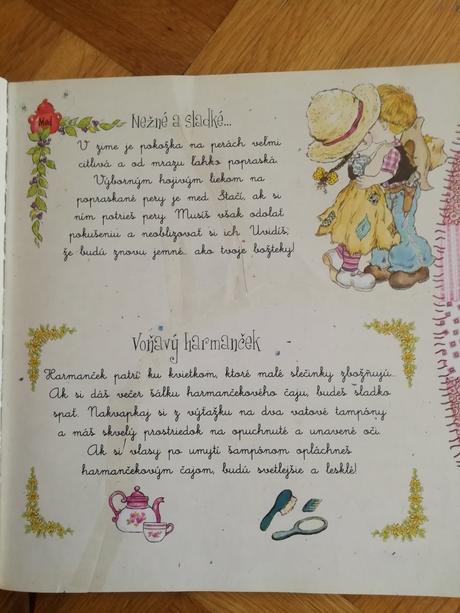 Med
Nežné a sladké...
V zime je pokožka na perách veľmi
citlivá a od mrazu ľahko popraská.
Výborným hojivým liekom na
popraskané pery je med. Stačí, ak si
ním potrieš pery. Musíš však odolať
pokušeniu a neoblizovať si ich. Uvidíš,
že budú znovu jemné... ako tvoje božteky!
Voňavý harmanček
Harmanček patrí ku kvietkom, ktoré malé slečinky zbožňujú...
Ak si dáš večer šálku harmančekového čaju, budeš sladko
spať. Nakvapkaj si z výťažku na dva vatové tampóny
a máš skvelý prostriedok na opuchnuté a unavené oči.
Ak si vlasy po umytí šampónom opláchneš
harmančekovým čajom, budú svetlejšie a lesklé!